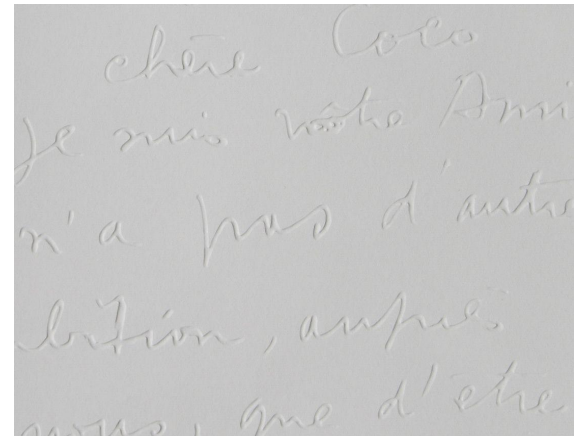 chère Coco
Je suis vôtre Ami
n'a pas d'autre
bition, auprès
vous, que d'être